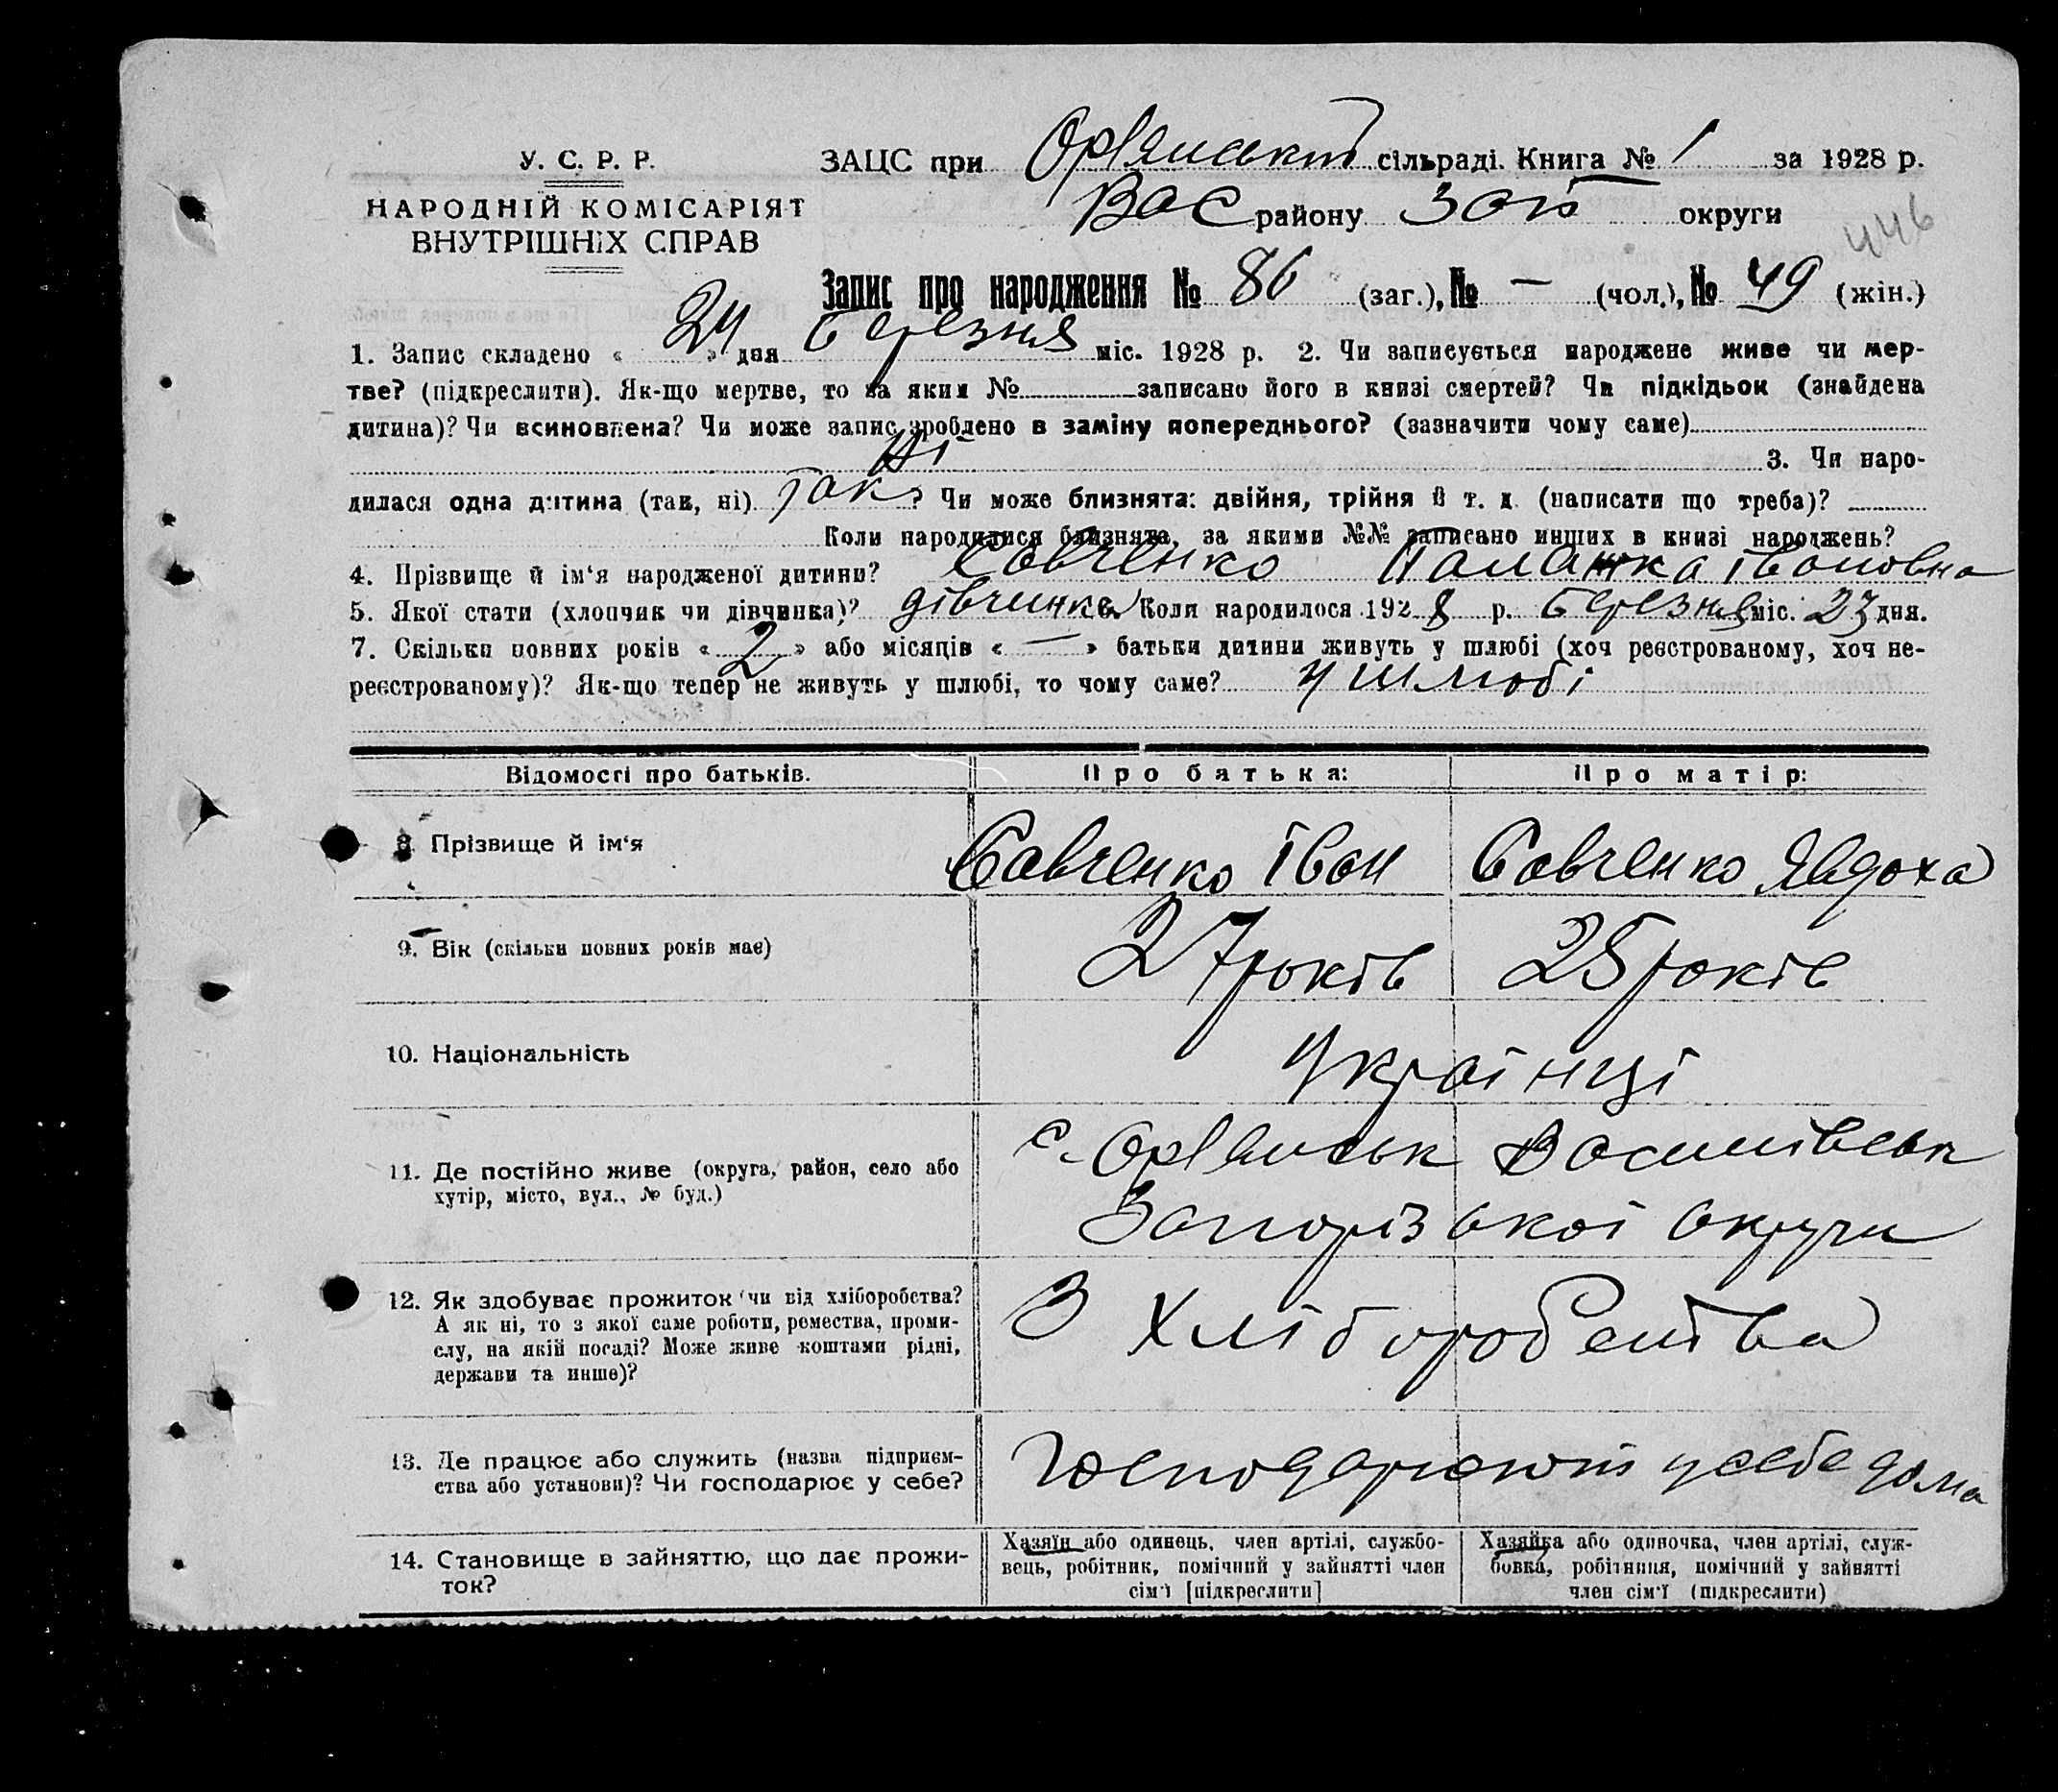 У. С. Р. Р.
НАРОДНІЙ КОМІСАРІЯТ
ВНУТРІШНІХ СПРАВ
ЗАЦС при Оряянській сільраді. Книга № 1 за 1928 р.
Вас району Зап округи
446
Запис про народження № 86 (заг.), № — (чол.), № 49 (жін.)
1. Запис складено « 24 » дня березня міс. 1928 р. 2. Чи записується народжене живе чи мер-
тве? (підкреслити). Як-що мертве, то за яким № записано його в книзі смертей? Чи підкідьок (знайдена
дитина)? Чи всиновлена? Чи може запис зроблено в заміну попереднього? (зазначити чому саме)
Ні 3. Чи наро-
дилася одна дитина (так, ні) так ? Чи може близнята: двійня, трійня й т. д. (написати що треба)?
Коли народилися близнята, за якими №№ записано инших в книзі народжень?
4. Прізвище й ім‘я народженої дитини? Савченко Паланжка Івановна
5. Якої стати (хлопчик чи дівчинка)? дівчинка Коли народилося 1928 р. березня міс. 23 дня.
7. Скільки повних років « 2 » або місяців « — » батьки дитини живуть у шлюбі (хоч реєстрованому, хоч не-
реєстрованому)? Як-що тепер не живуть у шлюбі, то чому саме? у шлюбі
Відомості про батьків. Про батька: Про матір:
8. Прізвище й ім‘я Савченко Іван Савченко Явдоха
9. Вік (скільки повних років має) 27 років 25 років
10. Національність Українці
11. Де постійно живе (округа, район, село або
хутір, місто, вул., № буд.)
с. Орлянськ Василівськ
Запорізької округи
12. Як здобуває прожиток чи від хліборобства?
А як ні, то з якої саме роботи, ремества, проми-
слу, на якій посаді? Може живе коштами рідні,
держави та инше)?
З хліборобства
13. Де працює або служить (назва підприєм-
ства або установи)? Чи господарює у себе?
Господарюють у себе дома
14. Становище в зайняттю, що дає прожи-
ток?
Хазяїн або одинець, член артілі, службо-
вець, робітник, помічний у зайнятті член
сім‘ї [підкреслити]
Хазяйка або одиночка, член артілі, служ-
бовка, робітниця, помічний у зайнятті
член сім‘ї (підкреслити)